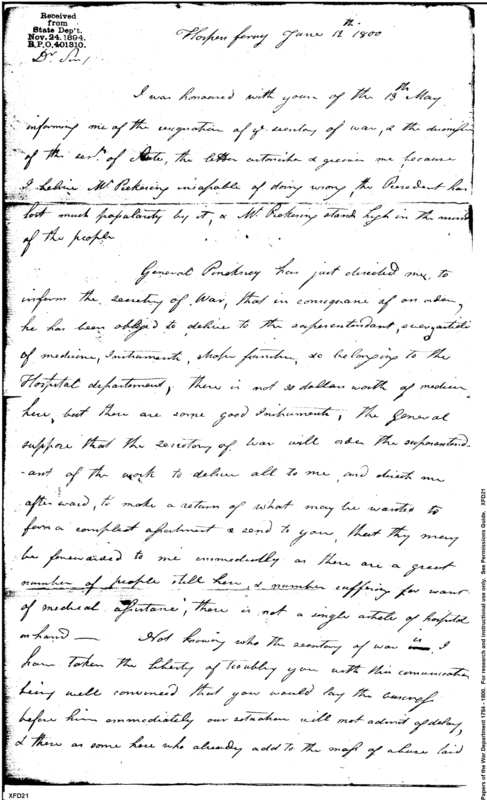 Received
from
State Dep't.
Nov. 24. 1894.
R.P.O. 401310.
Harpers ferry June 12th 1800
Dr Sir/
I was honoured with yours of the 13th May
informing me of the resignation of ye secretary of war, & the dismission
of the secy. of State, the latter astonishes & grieves me because
I believe Mr Pickering incapable of doing wrong, the President has
lost much popularity by it, & Mr Pickering stands high in the minds
of the people
General Pinckney has just directed me to
inform the secretary of War, that in consequence of an order,
he has been obliged to deliver to the superintendant, every article
of medicine, Instruments, shop furniture, &c belonging to the
Hospital department, there is not 20 dollars worth of medicine
here, but there are some good Instruments, the General
suppose that the Secretary of War will order the superintend-
-ant of the work to deliver all to me, and direct me
afterward, to make a return of what may be wanted to
form a compleat assortment & send to you, that they may
be forwarded to me immediately as there are a great
number of people still here, & number suffering for want
of medical assistance, there is not a single article of hospital
on hand — Not knowing who the secretary of war is I
have taken the liberty of troubling you with this comunication
being well convinced that you would lay the
before him immediately our situation will not admit of delay,
& there as some here who already add to the mass of abuse laid
XFD21
Papers of the War Department 1784 - 1800. For research and instructional use only. See Permissions Guide. XFD21